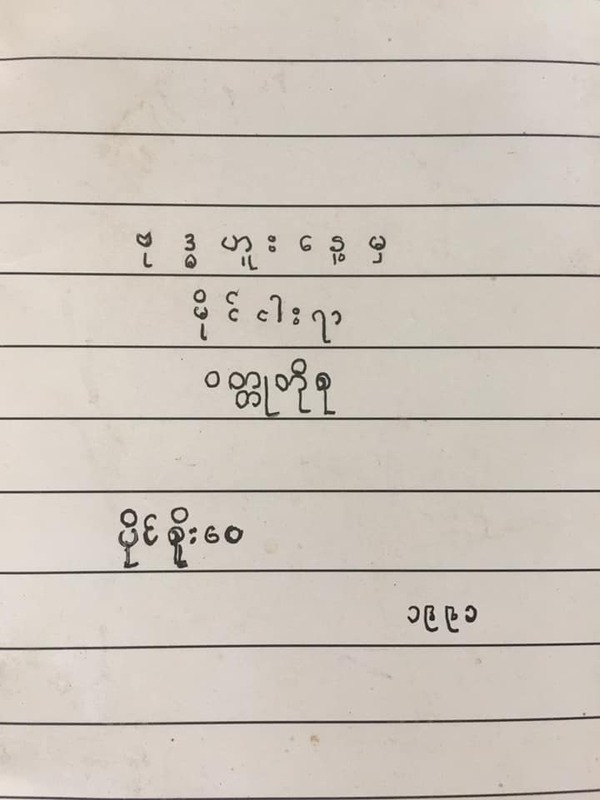 ဗုဒ္ဓဟူးနေ့မှ
မိုင် ငါးရာ
ဝတ္ထုတိုစု
ပိုင်စိုးဝေ
၁၉၉၁